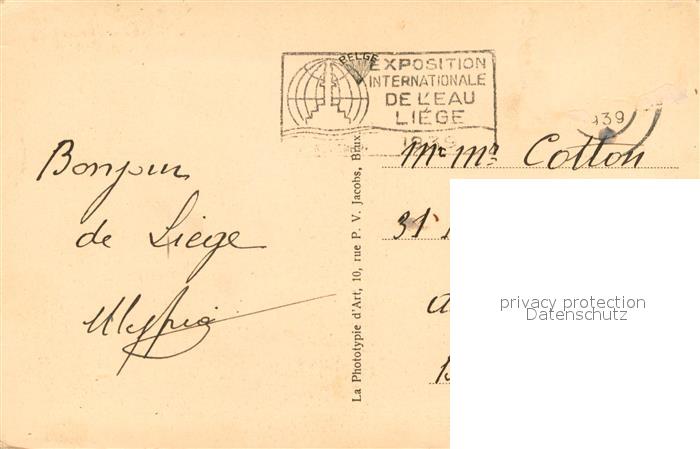 BELGE
EXPOSITION
INTERNATIONALE
DE L'EAU
LIÉGE
1939
939
Bonjour
de Liège
La Phototypie d'Art, 10, rue P. V. Jacobs, Brux.
Mr Mme Cotton
31
privacy protection
Datenschutz